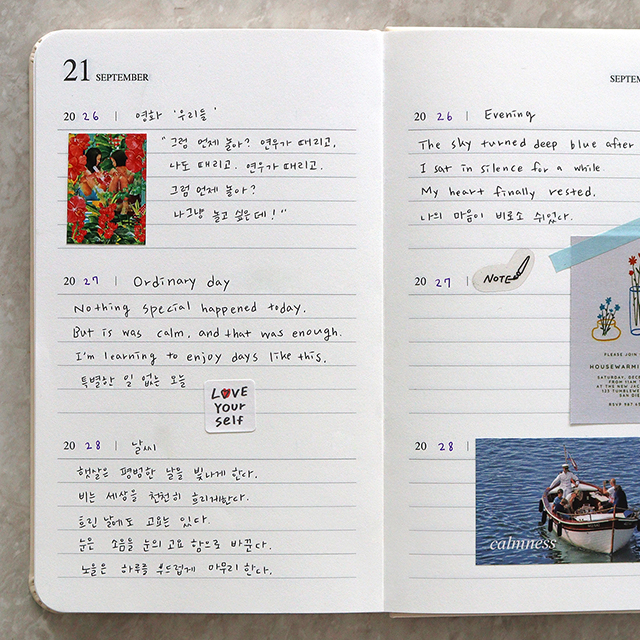 21 SEPTEMBER
20 26 | 영화 '우리들'
"그럼 언제 놀아? 연우가 때리고,
나도 때리고. 연우가 때리고.
그럼 언제 놀아?
나 그냥 놀고 싶은데!"
20 27 | Ordinary day
Nothing special happened today.
But is was calm, and that was enough.
I'm learning to enjoy days like this.
특별한 일 없는 오늘
LOVE
Your
self
20 28 | 날씨
햇살은 평범한 날을 빛나게 한다.
비는 세상을 천천히 흐리게한다.
흐린 날에도 고요는 있다.
눈은 소음을 눈의 고요 함으로 바꾼다.
노을은 하루를 부드럽게 마무리 한다.
SEPTEM
20 26 | Evening
The sky turned deep blue after
I sat in silence for a while.
My heart finally rested.
나의 마음이 비로소 쉬었다.
20 27 |
NOTE
PLEASE JOIN
HOUSEWARMI
SATURDAY, DEC
FROM 11AM
AT THE NEW JAC
123 TUMBLEWE
SAN DIE
RSVP 987 67
20 28 |
calmness